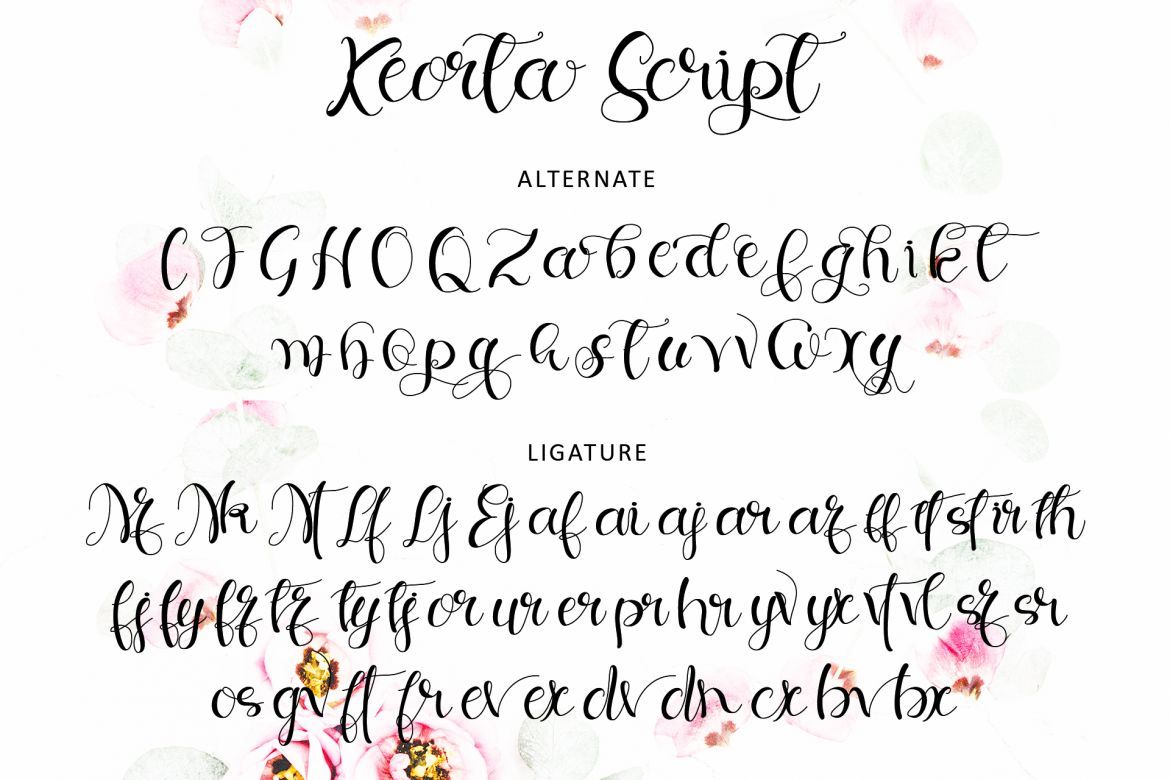 Keorta Script
ALTERNATE
C F G H O Q Z a b c d e f g h i k t
m h o p q a s t u v v w x y
LIGATURE
Nz Nk Nt Lf Lj Ej af ai aj ar az ff tf sf ir th
fj fy fz tz ty tj or ur er pr hr yv yx vf vt sz sr
os gv ft fr ev ex dv dn cx bv bx